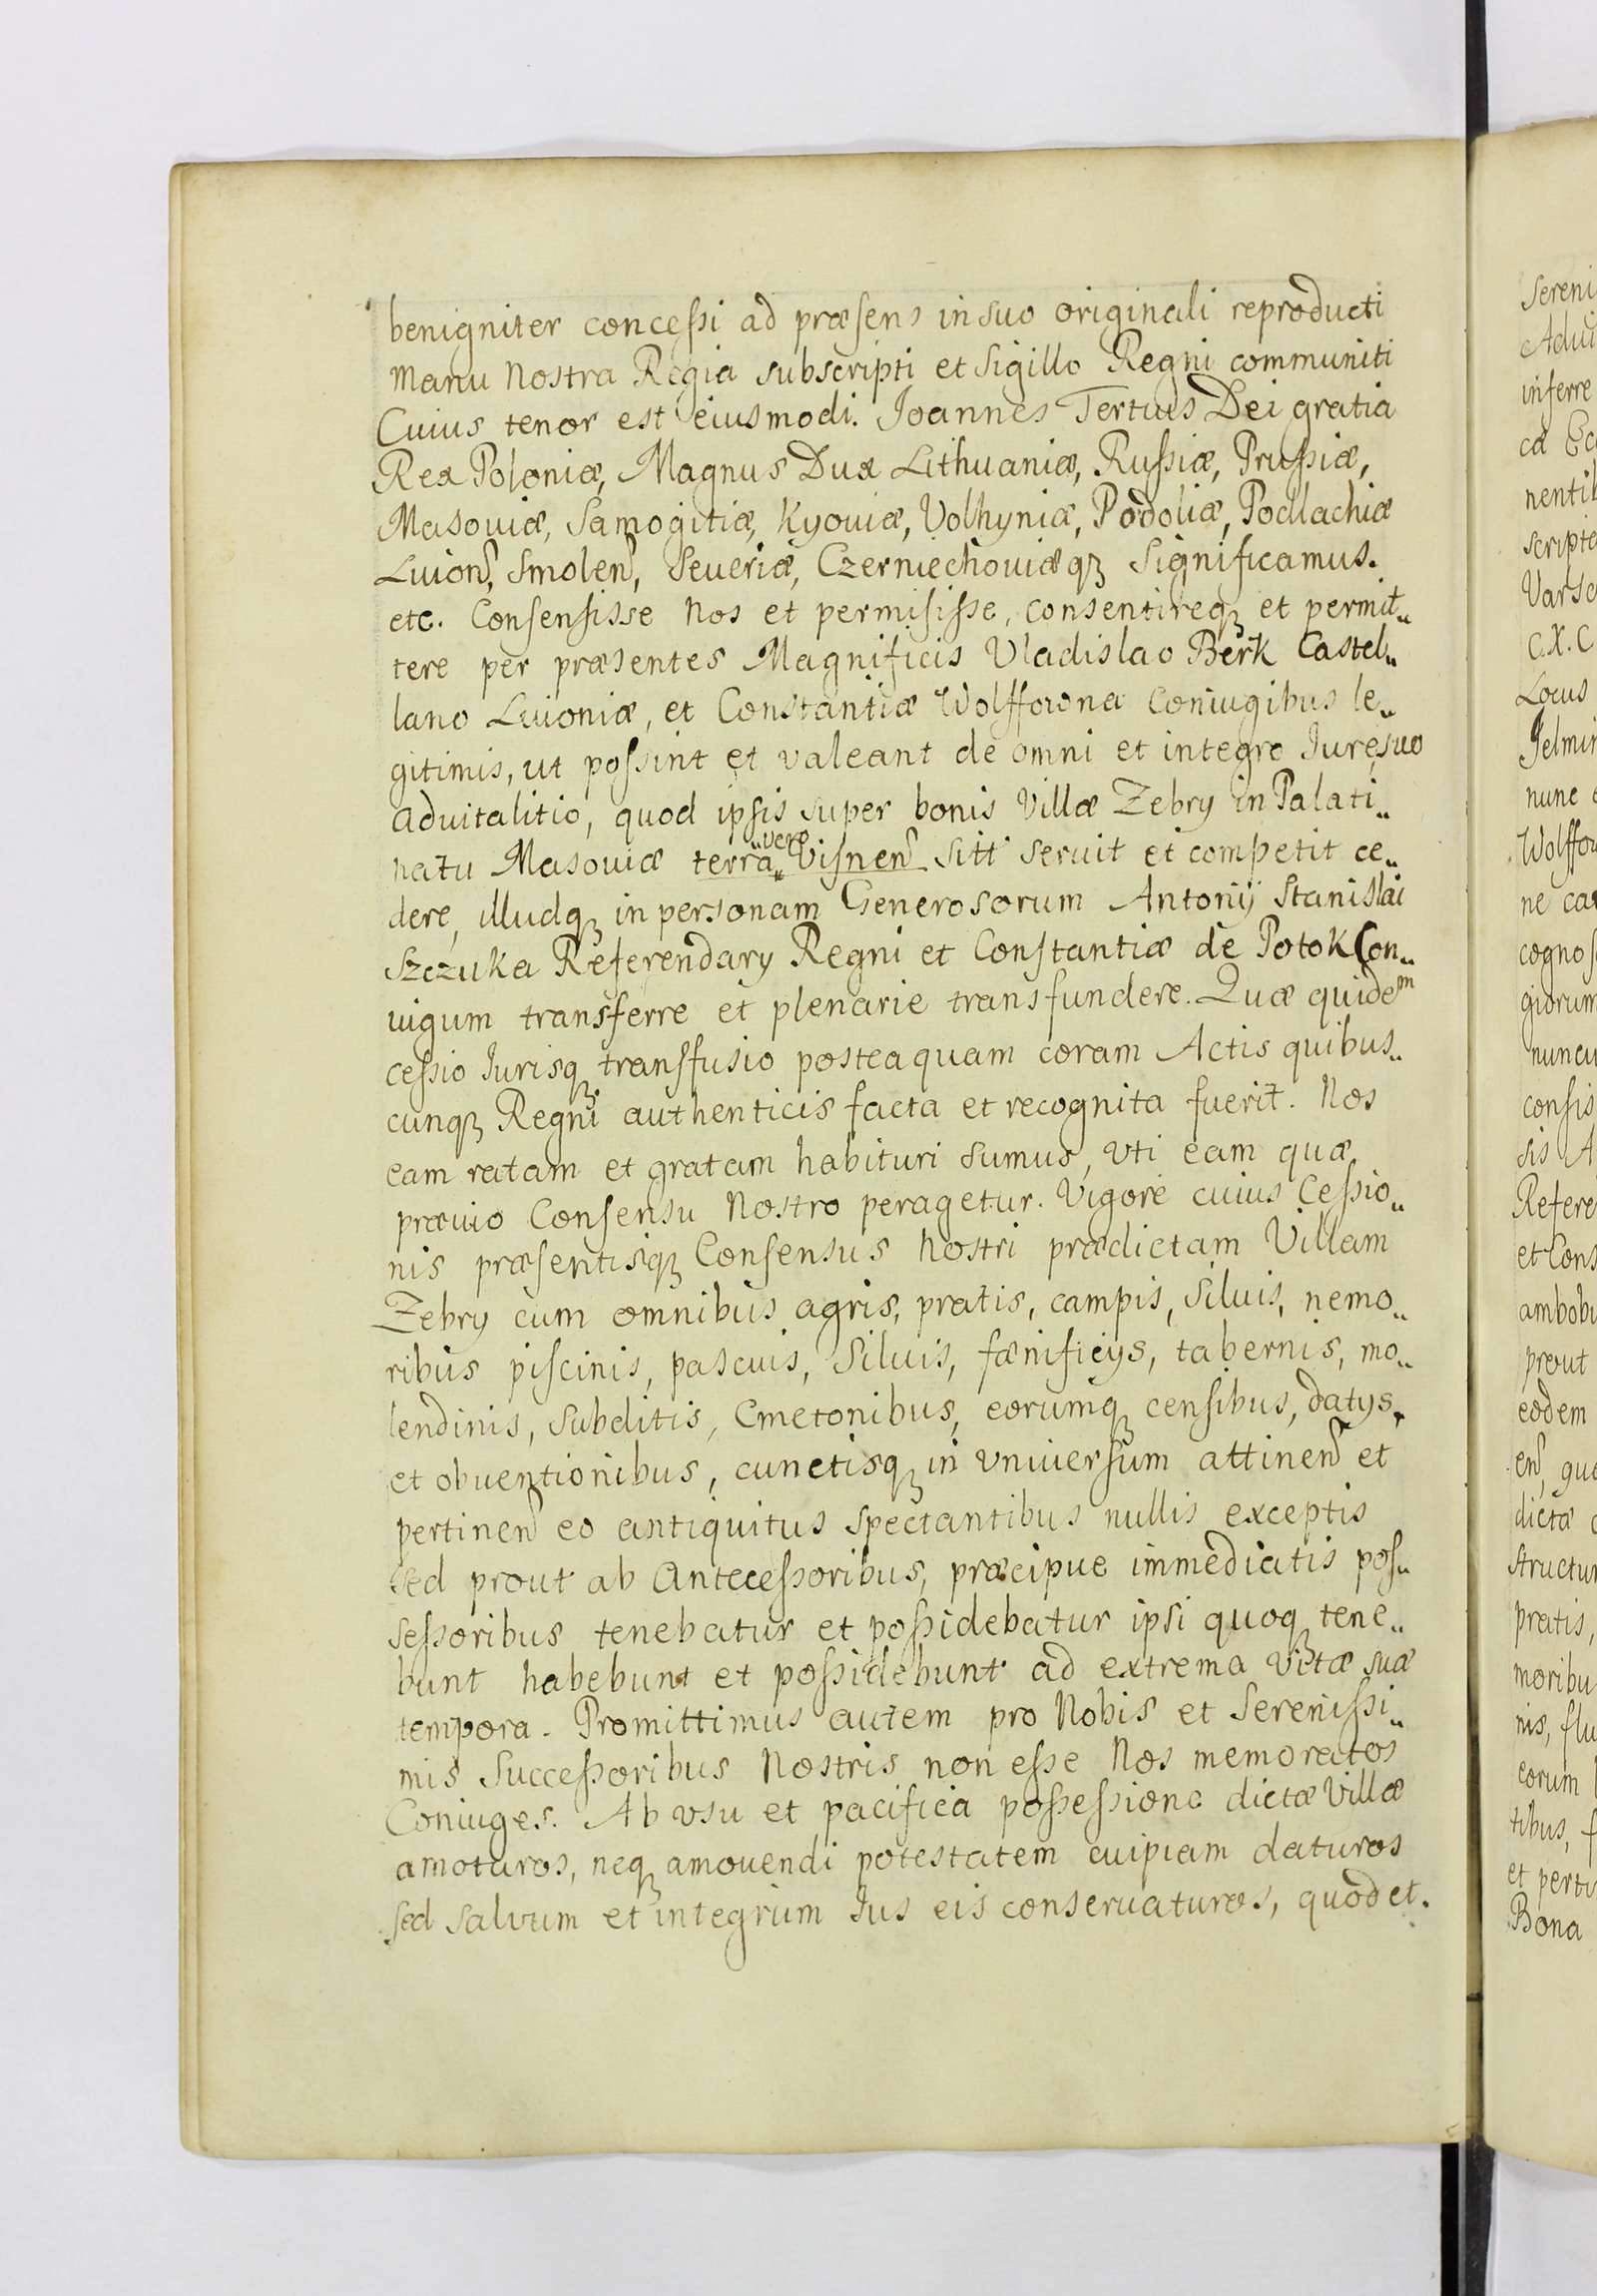 benigniter concessi ad præsens in suo originali reproducti
manu Nostra Regia subscripti et Sigillo Regni communiti
Cuius tenor est eiusmodi. Joannes Tertius Dei gratia
Rex Poloniæ, Magnus Dux Lithuaniæ, Russiæ, Prussiæ,
Masouiæ, Samogitiæ, Kyouiæ, Volhyniæ, Podoliæ, Podlachiæ
Liuoñ, Smoleñ, Seueriæ, Czerniechouiæqȝ Significamus.
etc. Consensisse Nos et permisisse, consentireqȝ et permit„
tere per præsentes Magnificis Vladislao Berk Castel„
lano Liuoniæ, et Constantiæ Wolffowna Coniugibus le„
gitimis, ut possint et valeant de omni et integro Jure suo
aduitalitio, quod ipsis super bonis Villæ Zebry in Palati„
natu Masouiæ terra „vero„ Visneñ sitt seruit et competit ce„
dere, illudqȝ in personam Generosorum Antonij Stanislai
Szczuka Referendary Regni et Constantiæ de Potok Con„
iugum transferre et plenarie transfundere. Quæ quidem
cessio Jurisqȝ transfusio posteaquam coram Actis quibus„
cunqȝ Regni authenticis facta et recognita fuerit. Nos
eam ratam et gratam habituri sumus, vti eam quæ
præuio Consensu Nostro peragetur. Vigore cuius Cessio„
nis præsentisqȝ Consensus Nostri prædictam Villam
Zebry cum omnibus agris, pratis, campis, Siluis, nemo„
ribus piscinis, pascuis, Siluis, fænificys, tabernis, mo„
lendinis, subditis, Cmetonibus, eorumqȝ censibus, datys,
et obuentionibus, cunctisqȝ in vniuersum attineñ et
pertineñ eo antiquitus spectantibus nullis exceptis
sed prout ab Antecessoribus, præcipue immediatis pos„
sessoribus tenebatur et possidebatur ipsi quoqȝ tene„
bunt habebunt et possidebunt ad extrema vitæ suæ
tempora. Promittimus autem pro Nobis et Serenissi„
mis Successoribus Nostris non esse Nos memoratos
Coniuges. Ab vsu et pacifica possessione dictæ Villæ
amoturos, neqȝ amouendi potestatem cuipiam daturos
sed salvum et integrum Jus eis conseruaturos, quod et.
Sereni
Adui
inferre
ca Ec
nentib
scripto
Varso
C.X.C
Locus
Jelmin
nunc
Wolffow
ne cau
cognos
giorum
nuncu
consis
sis A
Refere
et Cons
ambobu
prout
eodem
eñ, quo
dictæ
structur
pratis,
moribu
nis, flu
eorum
tibus, f
et perti
Bona